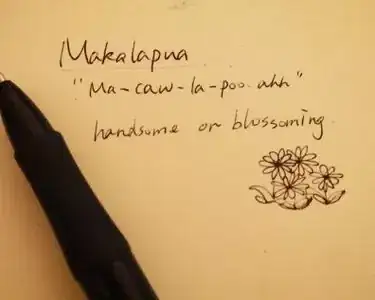 Makalapua
"Ma-caw-la-poo-ahh"
handsome or blossoming